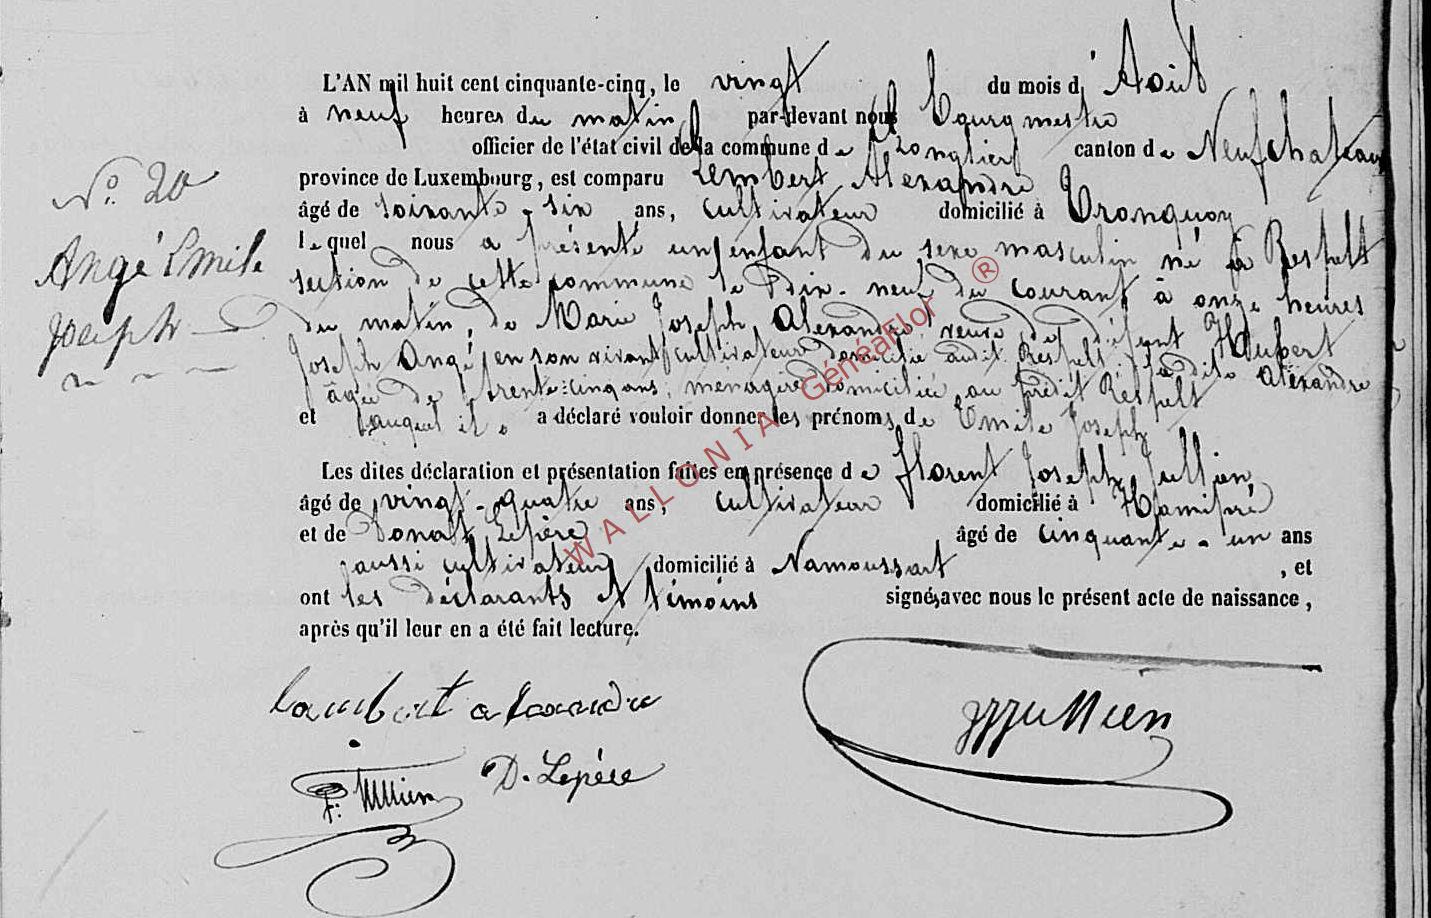 L'AN mil huit cent cinquante-cinq, le vingt du mois d'Août
à neuf heures du matin par-devant nous Bourgmestre
officier de l'état civil de la commune de Longlier canton de Neufchateau
province de Luxembourg, est comparu Lembert Alexandre
âgé de soixante-six ans, cultivateur domicilié à Tronquoy
lequel nous a présenté un enfant du sexe masculin né à Respelt
section de cette commune le Dix-neuf du courant à onze heures
du matin, de Marie Joseph Alexandre veuve de défunt Hubert
Joseph Angé, en son vivant cultivateur domicilié audit Respelt, la dite Alexandre
âgée de trente-cinq ans, ménagère domiciliée au prédit Respelt
et auquel il a déclaré vouloir donner les prénoms de Emile Joseph
Les dites déclaration et présentation faites en présence de Florent Joseph Jullien
âgé de vingt-quatre ans, cultivateur domicilié à Hamipré
et de Donat Lepère âgé de cinquante-un ans
aussi cultivateur domicilié à Namoussart, et
ont les déclarants et témoins signé, avec nous le présent acte de naissance,
après qu'il leur en a été fait lecture.
No. 20
Angé Emile
Joseph
Lambert alexandre
F: Jullien
D. Lepére
Jullien
WALLONIA GénéaFlor ®